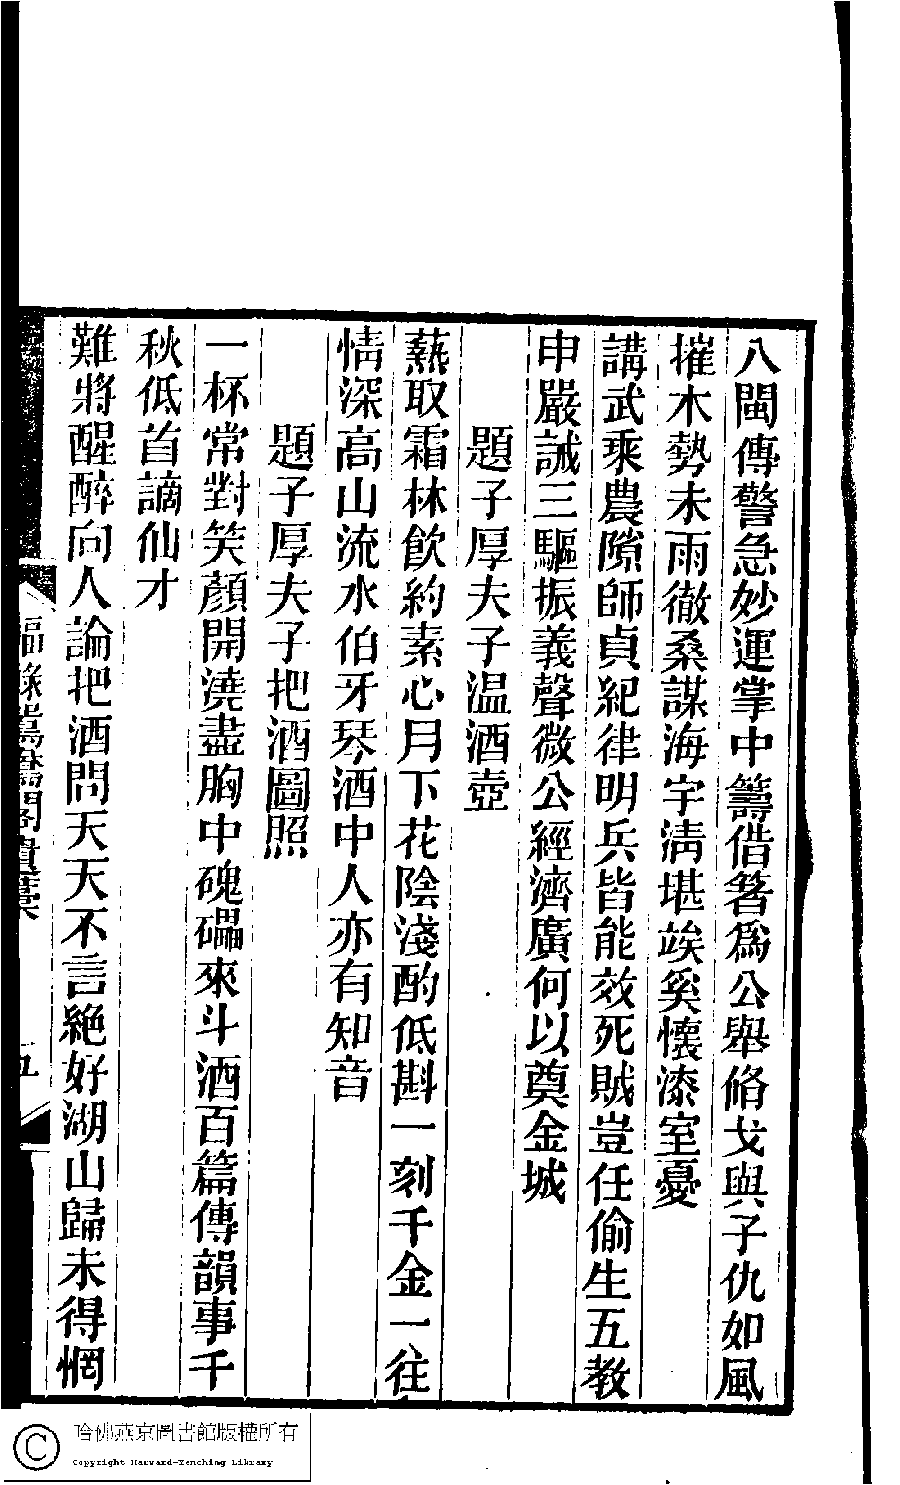 八閩傳警急妙運掌中籌借箸爲公舉脩戈與子仇如風
摧木勢未雨徹桑謀海宇淸堪竢奚懷漆室憂
講武乘農隙師貞紀律明兵皆能效死賊豈任偷生五教
申嚴誡三驅振義聲微公經濟廣何以奠金城
題子厚夫子温酒壺
爇取霜林飲約素心月下花陰淺酌低斟一刻千金一往
情深高山流水伯牙琴酒中人亦有知音
題子厚夫子把酒圖照
一杯常對笑顏開澆盡胸中磈礧來斗酒百篇傳韻事千
秋低首謫仙才
難將醒醉向人論把酒問天天不言絕好湖山歸未得惘
閣遺藁
五
哈佛燕京圖書館版權所有
Copyright Harvard-Yenching Library